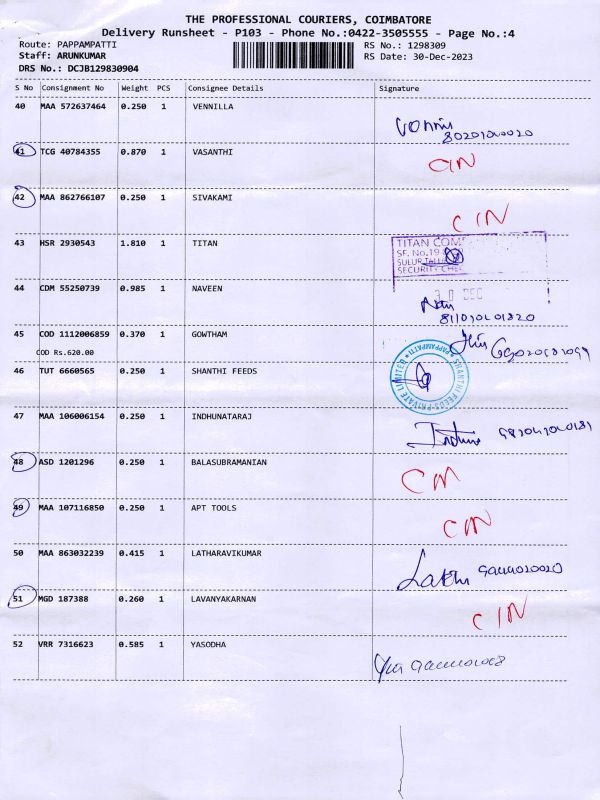 THE PROFESSIONAL COURIERS, COIMBATORE
Delivery Runsheet - P103 - Phone No.:0422-3505555 - Page No.:4
Route: PAPPAMPATTI RS No.: 1298309
Staff: ARUNKUMAR RS Date: 30-Dec-2023
DRS No.: DCJB129830904
S No Consignment No Weight PCS Consignee Details Signature
40 MAA 572637464 0.250 1 VENNILLA
41 TCG 40784355 0.870 1 VASANTHI CIN
42 MAA 862766107 0.250 1 SIVAKAMI CIN
43 HSR 2930543 1.810 1 TITAN
TITAN COM
SF. No.19
SULUR
SECURITY CHE
44 CDM 55250739 0.985 1 NAVEEN
45 COD 1112006859 0.370 1 GOWTHAM
COD Rs.620.00
46 TUT 6660565 0.250 1 SHANTHI FEEDS
SHANTHI FEEDS PRIVATE LIMITED
PAPPAMPATTI
47 MAA 106006154 0.250 1 INDHUNATARAJ
48 ASD 1201296 0.250 1 BALASUBRAMANIAN CIN
49 MAA 107116850 0.250 1 APT TOOLS CIN
50 MAA 863032239 0.415 1 LATHARAVIKUMAR
51 MGD 187388 0.260 1 LAVANYAKARNAN CIN
52 VRR 7316623 0.585 1 YASODHA